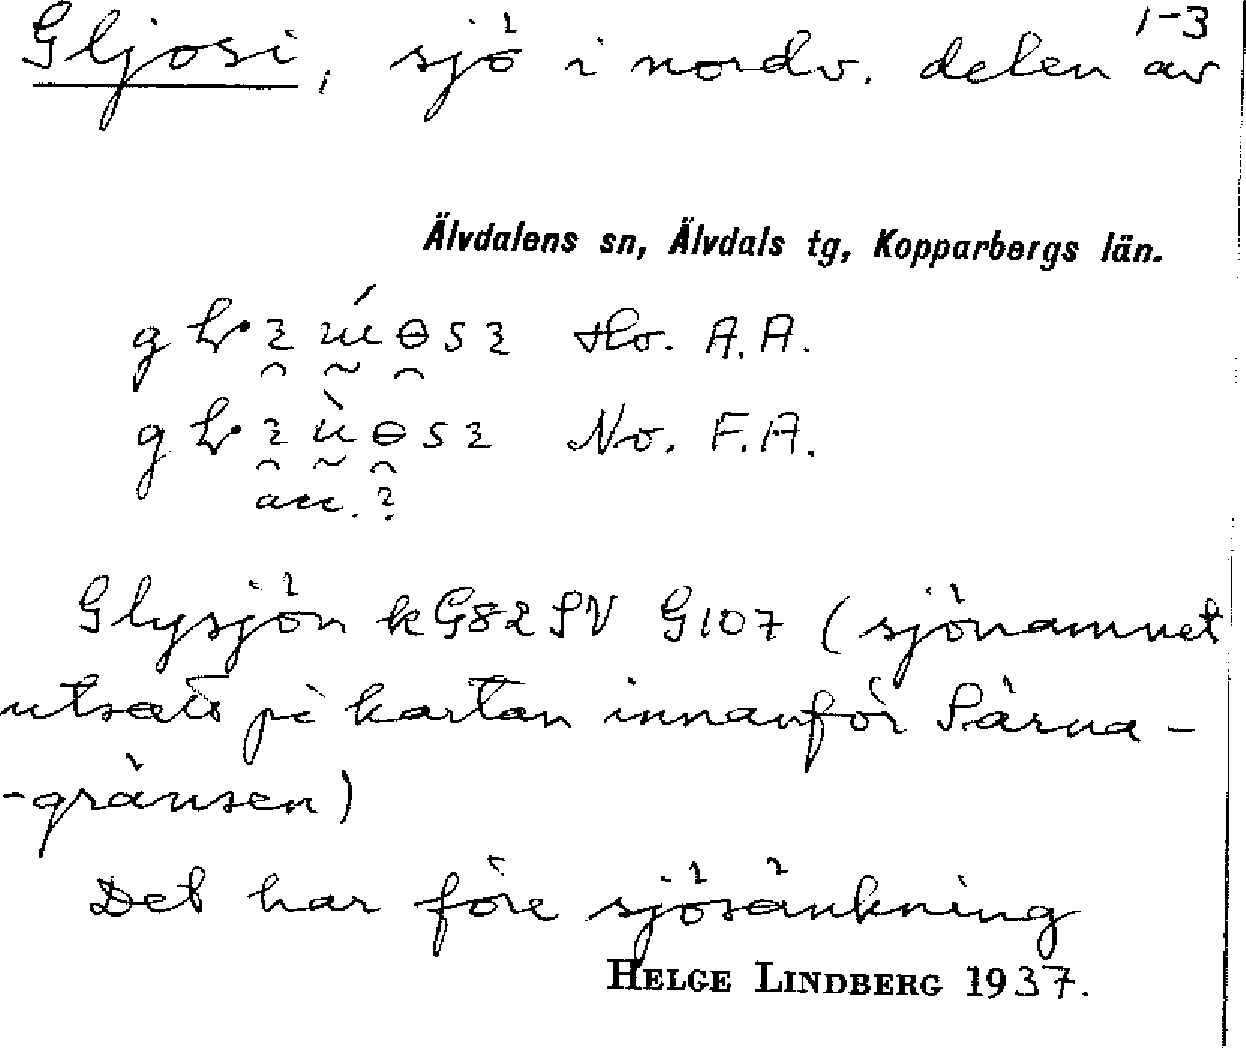 1-3
Gljosi, sjö i nordv. delen av
Älvdalens sn, Älvdals tg, Kopparbergs län.
Ho. A.A.
No. F.A.
acc.?
Glysjön kG82SV G107 (sjönamnet
utsatt på kartan innanför Särna-
-gränsen)
Det har före sjösänkning
HELGE LINDBERG 1937.